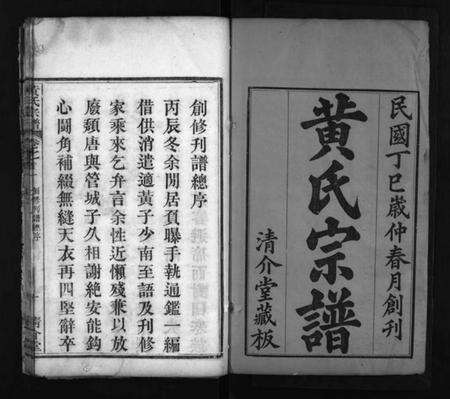 民國丁巳歲仲春月創刊
黃氏宗譜
清介堂藏板
創修刊譜總序
丙辰冬余閒居負曝手執通鑑一編
借供消遣適黃子少南至語及刊修
家乘來乞弁言余性近懶殘兼以放
廢頻唐與管城子久相謝絶安能鈎
心鬬角補綴無縫天衣再四堅辭卒
黃氏宗譜
創修刊譜總序
清介堂